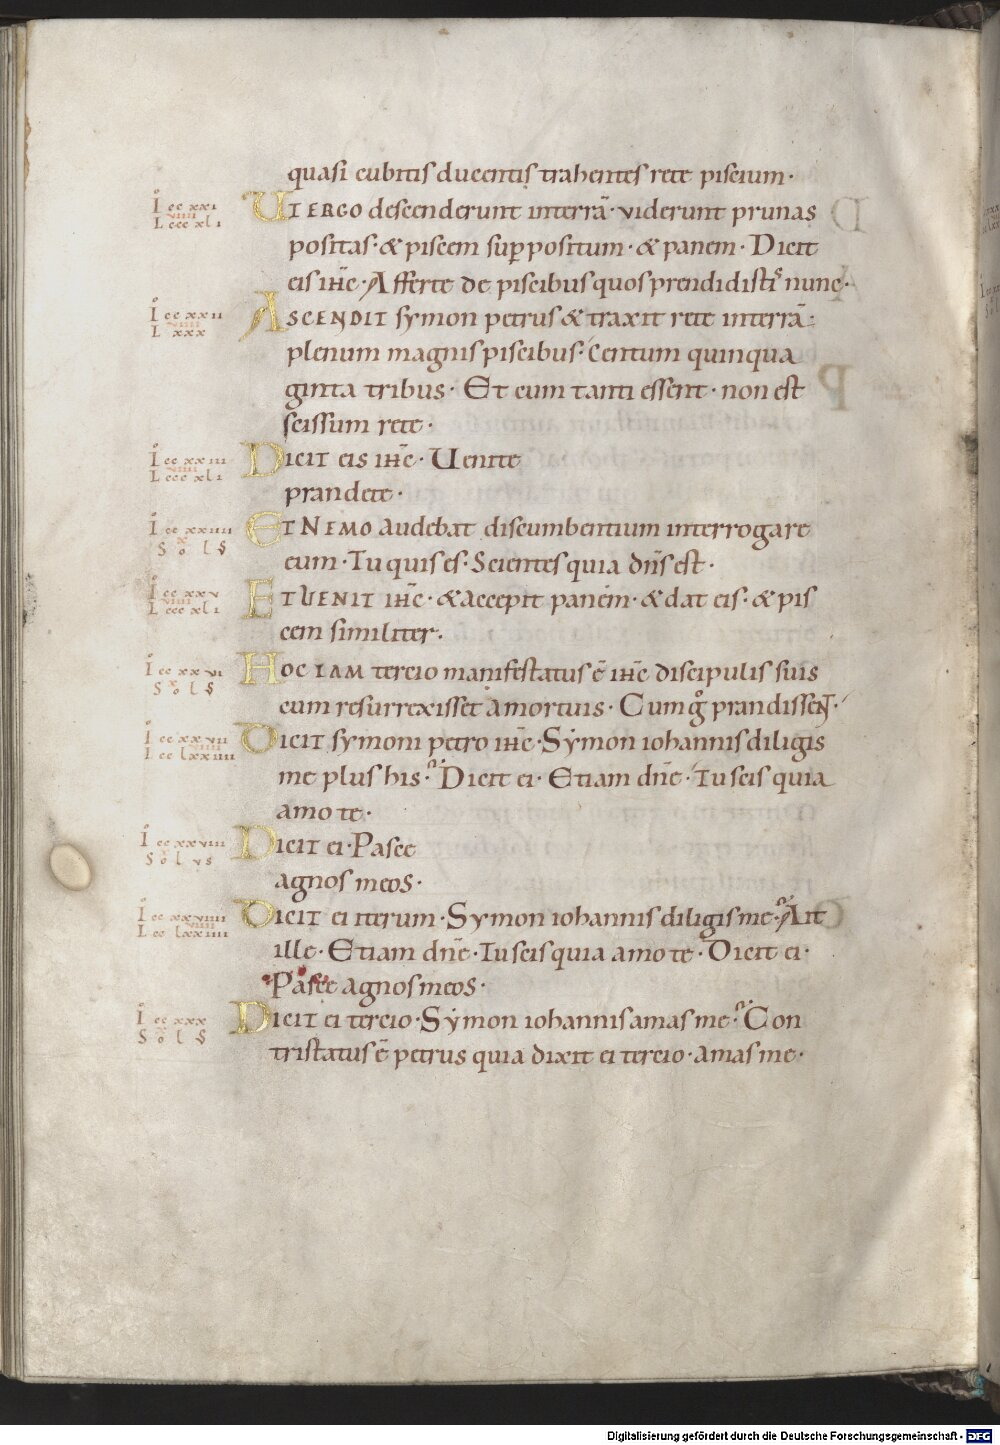 quasi cubitis ducentis trahentes rete piscium·
Io cc xxi
viiii
L ccc xli
UT ERGO descenderunt interrā· viderunt prunas
positas· & piscem sup positum· & panem· Dicit
eis ihc̄· Afferte de piscibus quos prendidistis nunc·
Io cc xxii
viiii
L xxx
ASCENDIT symon petrus & traxit rete interrā·
plenum magnis piscibus· Centum quinqua
ginta tribus· Et cum tanti essent· non est
scissum rete·
Io cc xxiii
viiii
L ccc xli
DICIT eis ihc̄· Uenite
prandete·
Io cc xxiiii
x
S o L S
ET NEMO audebat discumbentium interrogare
eum· Tu quis es· Scientes quia dn̄s est·
Io cc xxv
viiii
L ccc xli
ET UENIT ihc̄· & accepit panem· & dat eis· & pis
cem similiter·
Io cc xxvi
x
S o L S
HOC IAM tercio manifestatus ē ihc̄ discipulis suis
cum resurrexisset a mortuis· Cum gͦ prandissent·
Io cc xxvii
viiii
L cc lxxiiii
DICIT symoni petro ihc̄· Symon iohannis diligis
me plus his· Dicit ei· Etiam dn̄e· Tu scis quia
amo te·
Io cc xxviii
x
S o L vs
DICIT ei· Pasce
agnos meos·
Io cc xxviiii
viiii
L cc lxxiiii
DICIT ei iterum· Symon iohannis diligis me· Ait
ille· Etiam dn̄e· Tu scis quia amo te· Dicit ei·
Pasce agnos meos·
Io cc xxx
x
S o L S
DICIT ei tercio· Symon iohannis amas me· Con
tristatus ē petrus quia dixit ei tercio· amas me·
Digitalisierung gefördert durch die Deutsche Forschungsgemeinschaft - DFG